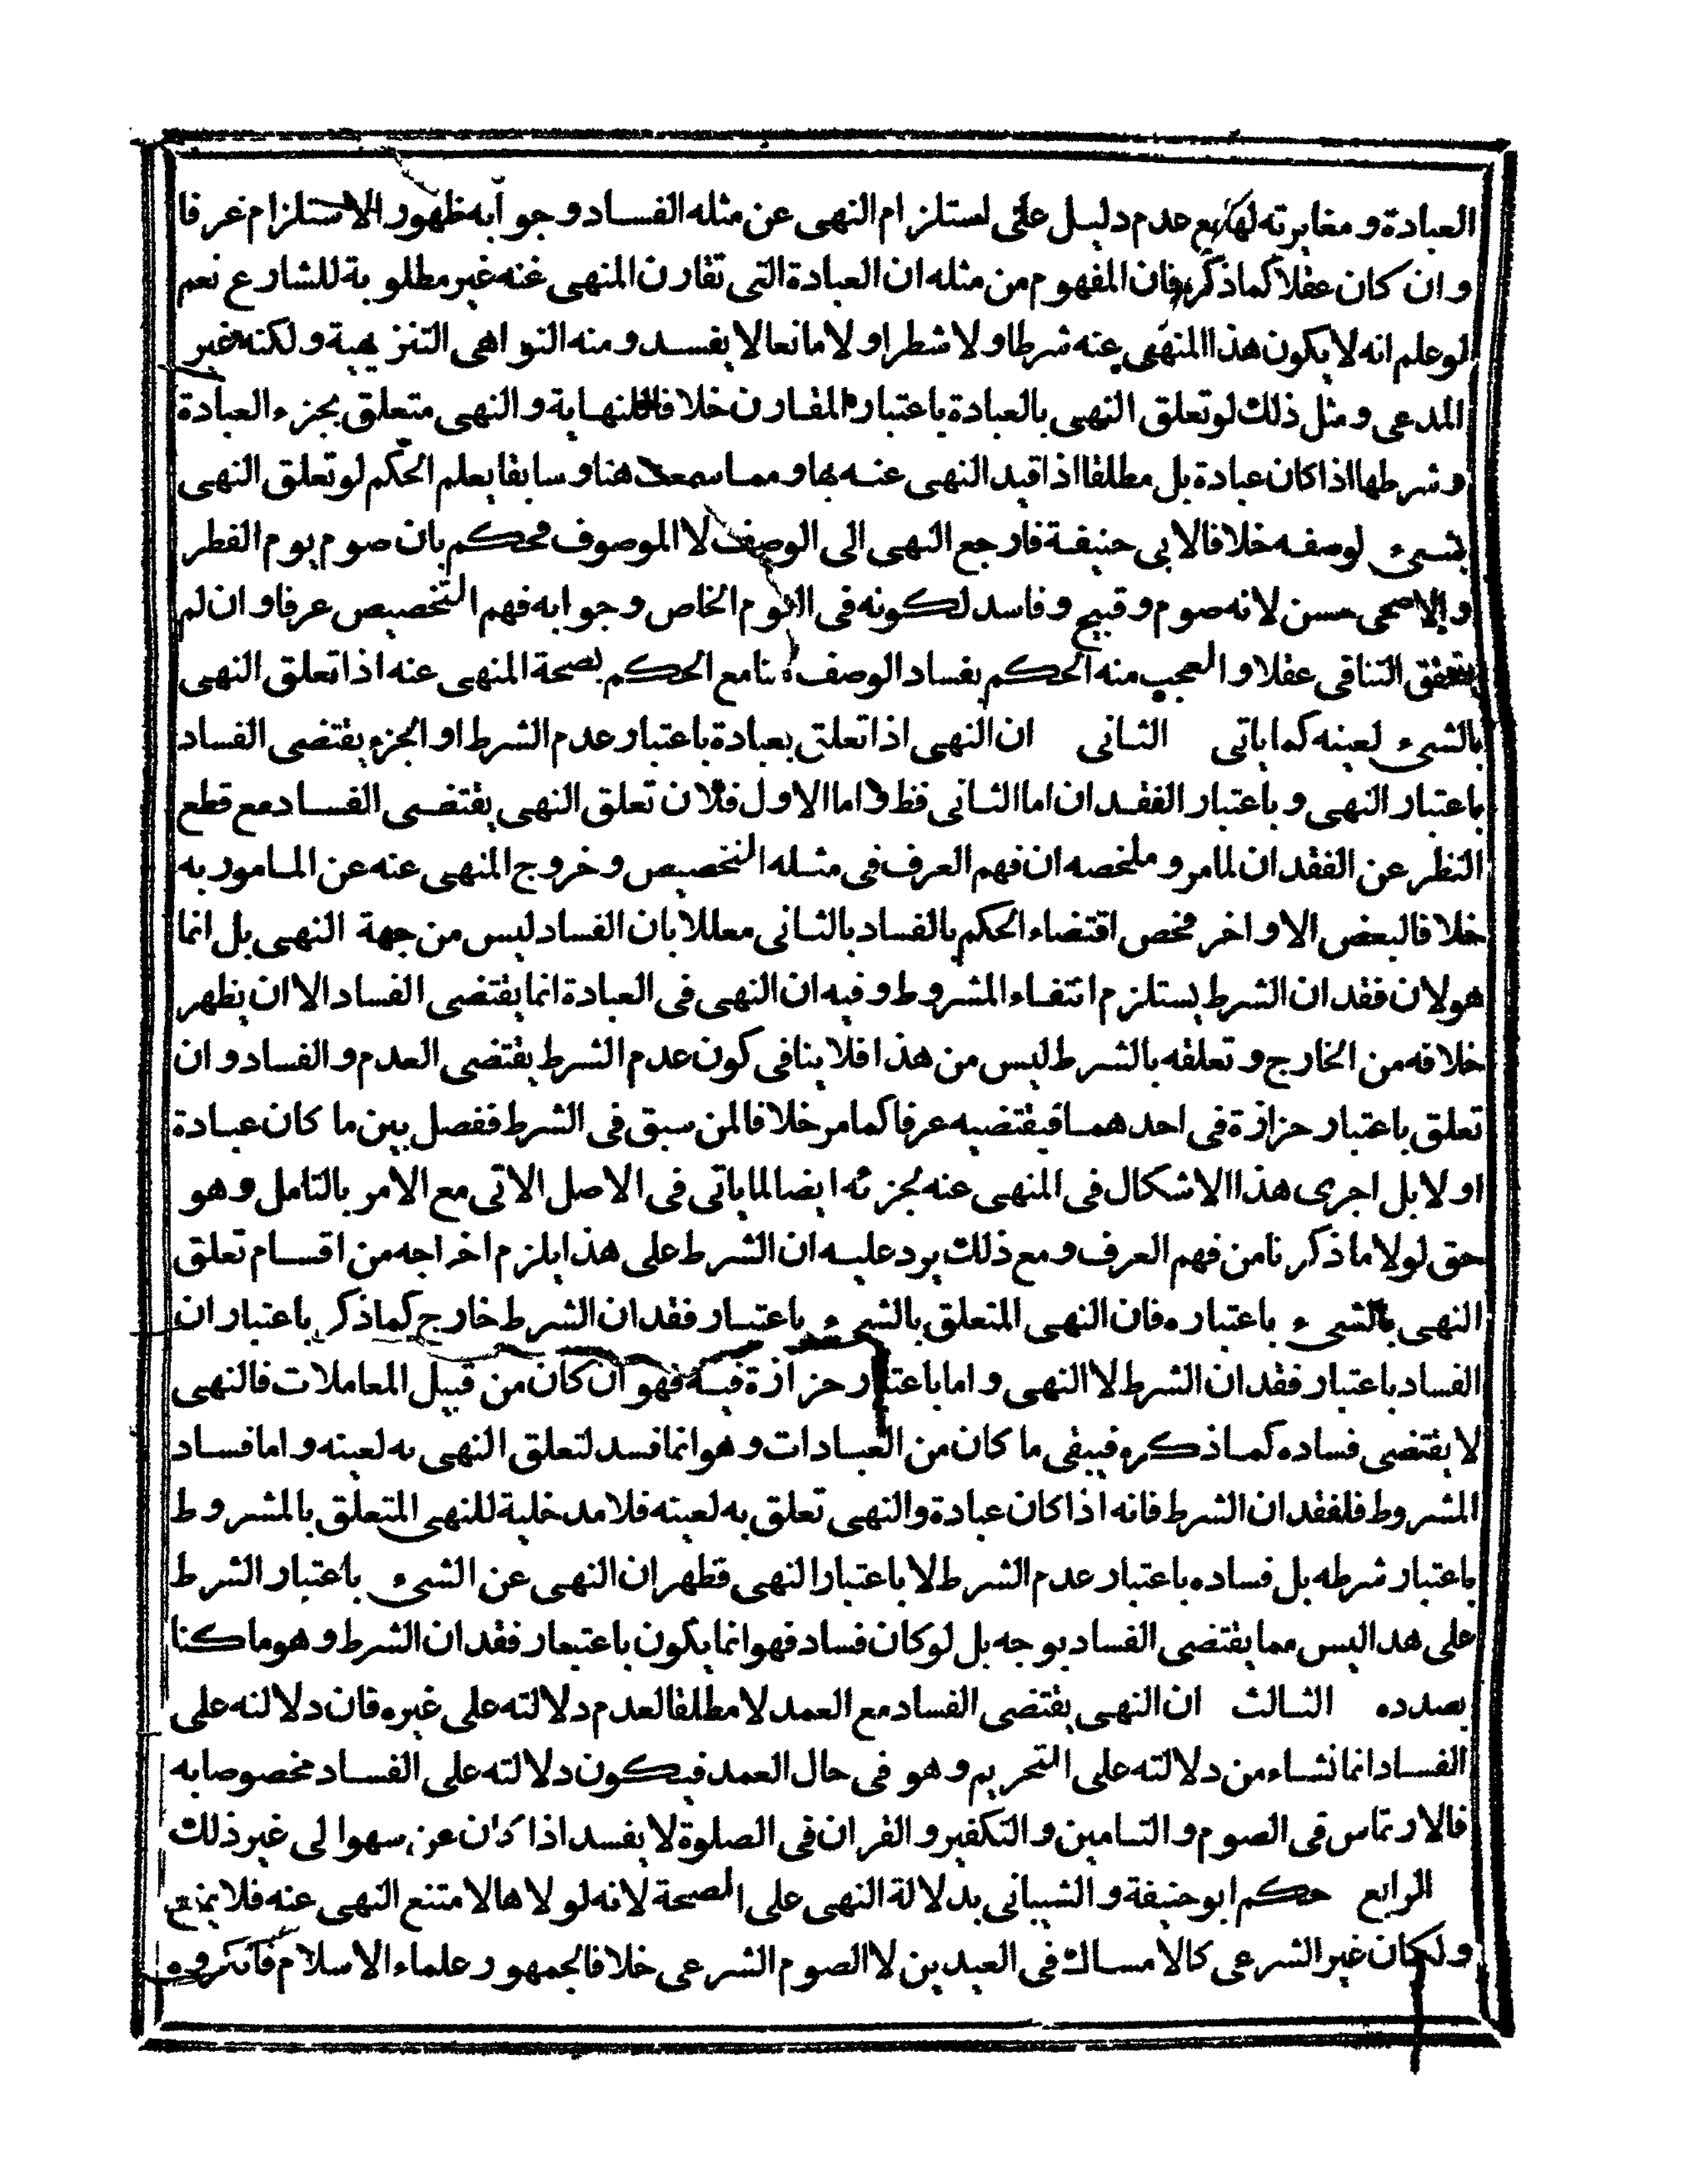 العبادة ومغايرته لها مع عدم دليل على استلزام النهى عن مثله الفساد وجوابه ظهور الاستلزام عرفا
وان كان عقلا كما ذكره فان المفهوم من مثله ان العبادة التى تقارن المنهى عنه غير مطلوبة للشارع نعم
لو علم انه لا يكون هذا المنهى عنه شرطا ولا شطرا ولا مانعا لا يفسد ومنه النواهى التنزيهية ولكنه غير
المدعى ومثل ذلك لو تعلق النهى بالعبادة باعتبار المقارن خلافا للنهاية والنهى متعلق بجزء العبادة
وشرطها اذا كان عبادة بل مطلقا اذا قيد النهى عنه بها ومما سمعت هنا وسابقا يعلم الحكم لو تعلق النهى
بشىء لوصفه خلافا لابى حنيفة فارجع النهى الى الوصف لا الموصوف فحكم بان صوم يوم الفطر
والاضحى حسن لانه صوم وقبيح وفاسد لكونه فى اليوم الخاص وجوابه فهم التخصيص عرفا وان لم
يتحقق التنافى عقلا والعجب منه الحكم بفساد الوصف هنا مع الحكم بصحة المنهى عنه اذا تعلق النهى
بالشىء لعينه كما ياتى الثانى ان النهى اذا تعلق بعبادة باعتبار عدم الشرط او الجزء يقتضى الفساد
باعتبار النهى وباعتبار الفقدان اما الثانى فظ واما الاول فلان تعلق النهى يقتضى الفساد مع قطع
النظر عن الفقدان لما مر وملخصه ان فهم العرف فى مثله التخصيص وخروج المنهى عنه عن المامور به
خلافا لبعض الاواخر فخص اقتضاء الحكم بالفساد بالثانى معللا بان الفساد ليس من جهة النهى بل انما
هو لان فقدان الشرط يستلزم انتفاء المشروط وفيه ان النهى فى العبادة انما يقتضى الفساد الا ان يظهر
خلافه من الخارج وتعلقه بالشرط ليس من هذا فلا ينافى كون عدم الشرط يقتضى العدم والفساد وان
تعلق باعتبار حزازة فى احدهما فيقتضيه عرفا كما مر خلافا لمن سبق فى الشرط ففصل بين ما كان عبادة
او لا بل اجرى هذا الاشكال فى المنهى عنه لجزئه ايضا لما ياتى فى الاصل الاتى مع الامر بالتامل وهو
حق لولا ما ذكرنا من فهم العرف ومع ذلك يرد عليه ان الشرط على هذا يلزم اخراجه من اقسام تعلق
النهى بالشىء باعتباره فان النهى المتعلق بالشىء باعتبار فقدان الشرط خارج كما ذكر باعتبار ان
الفساد باعتبار فقدان الشرط لا النهى واما باعتبار حزازة فيه فهو ان كان من قبيل المعاملات فالنهى
لا يقتضى فساده كما ذكره فيبقى ما كان من العبادات وهو انما فسد لتعلق النهى به لعينه واما فساد
المشروط فلفقدان الشرط فانه اذا كان عبادة والنهى تعلق به لعينه فلا مدخلية للنهى المتعلق بالمشروط
باعتبار شرطه بل فساده باعتبار عدم الشرط لا باعتبار النهى فظهر ان النهى عن الشىء باعتبار الشرط
على هذا ليس مما يقتضى الفساد بوجه بل لو كان فساد فهو انما يكون باعتبار فقدان الشرط وهو ما كنا
بصدده الثالث ان النهى يقتضى الفساد مع العمد لا مطلقا لعدم دلالته على غيره فان دلالته على
الفساد انما نشاء من دلالته على التحريم وهو فى حال العمد فيكون دلالته على الفساد مخصوصا به
فالارتماس فى الصوم والتامين والتكفير والقران فى الصلوة لا يفسد اذا كان عن سهو الى غير ذلك
الرابع حكم ابو حنيفة والشيبانى بدلالة النهى على الصحة لانه لولاها لامتنع النهى عنه فلا يمنع
ولكان غير الشرعى كالامساك فى العيدين لا الصوم الشرعى خلافا لجمهور علماء الاسلام فانكروه